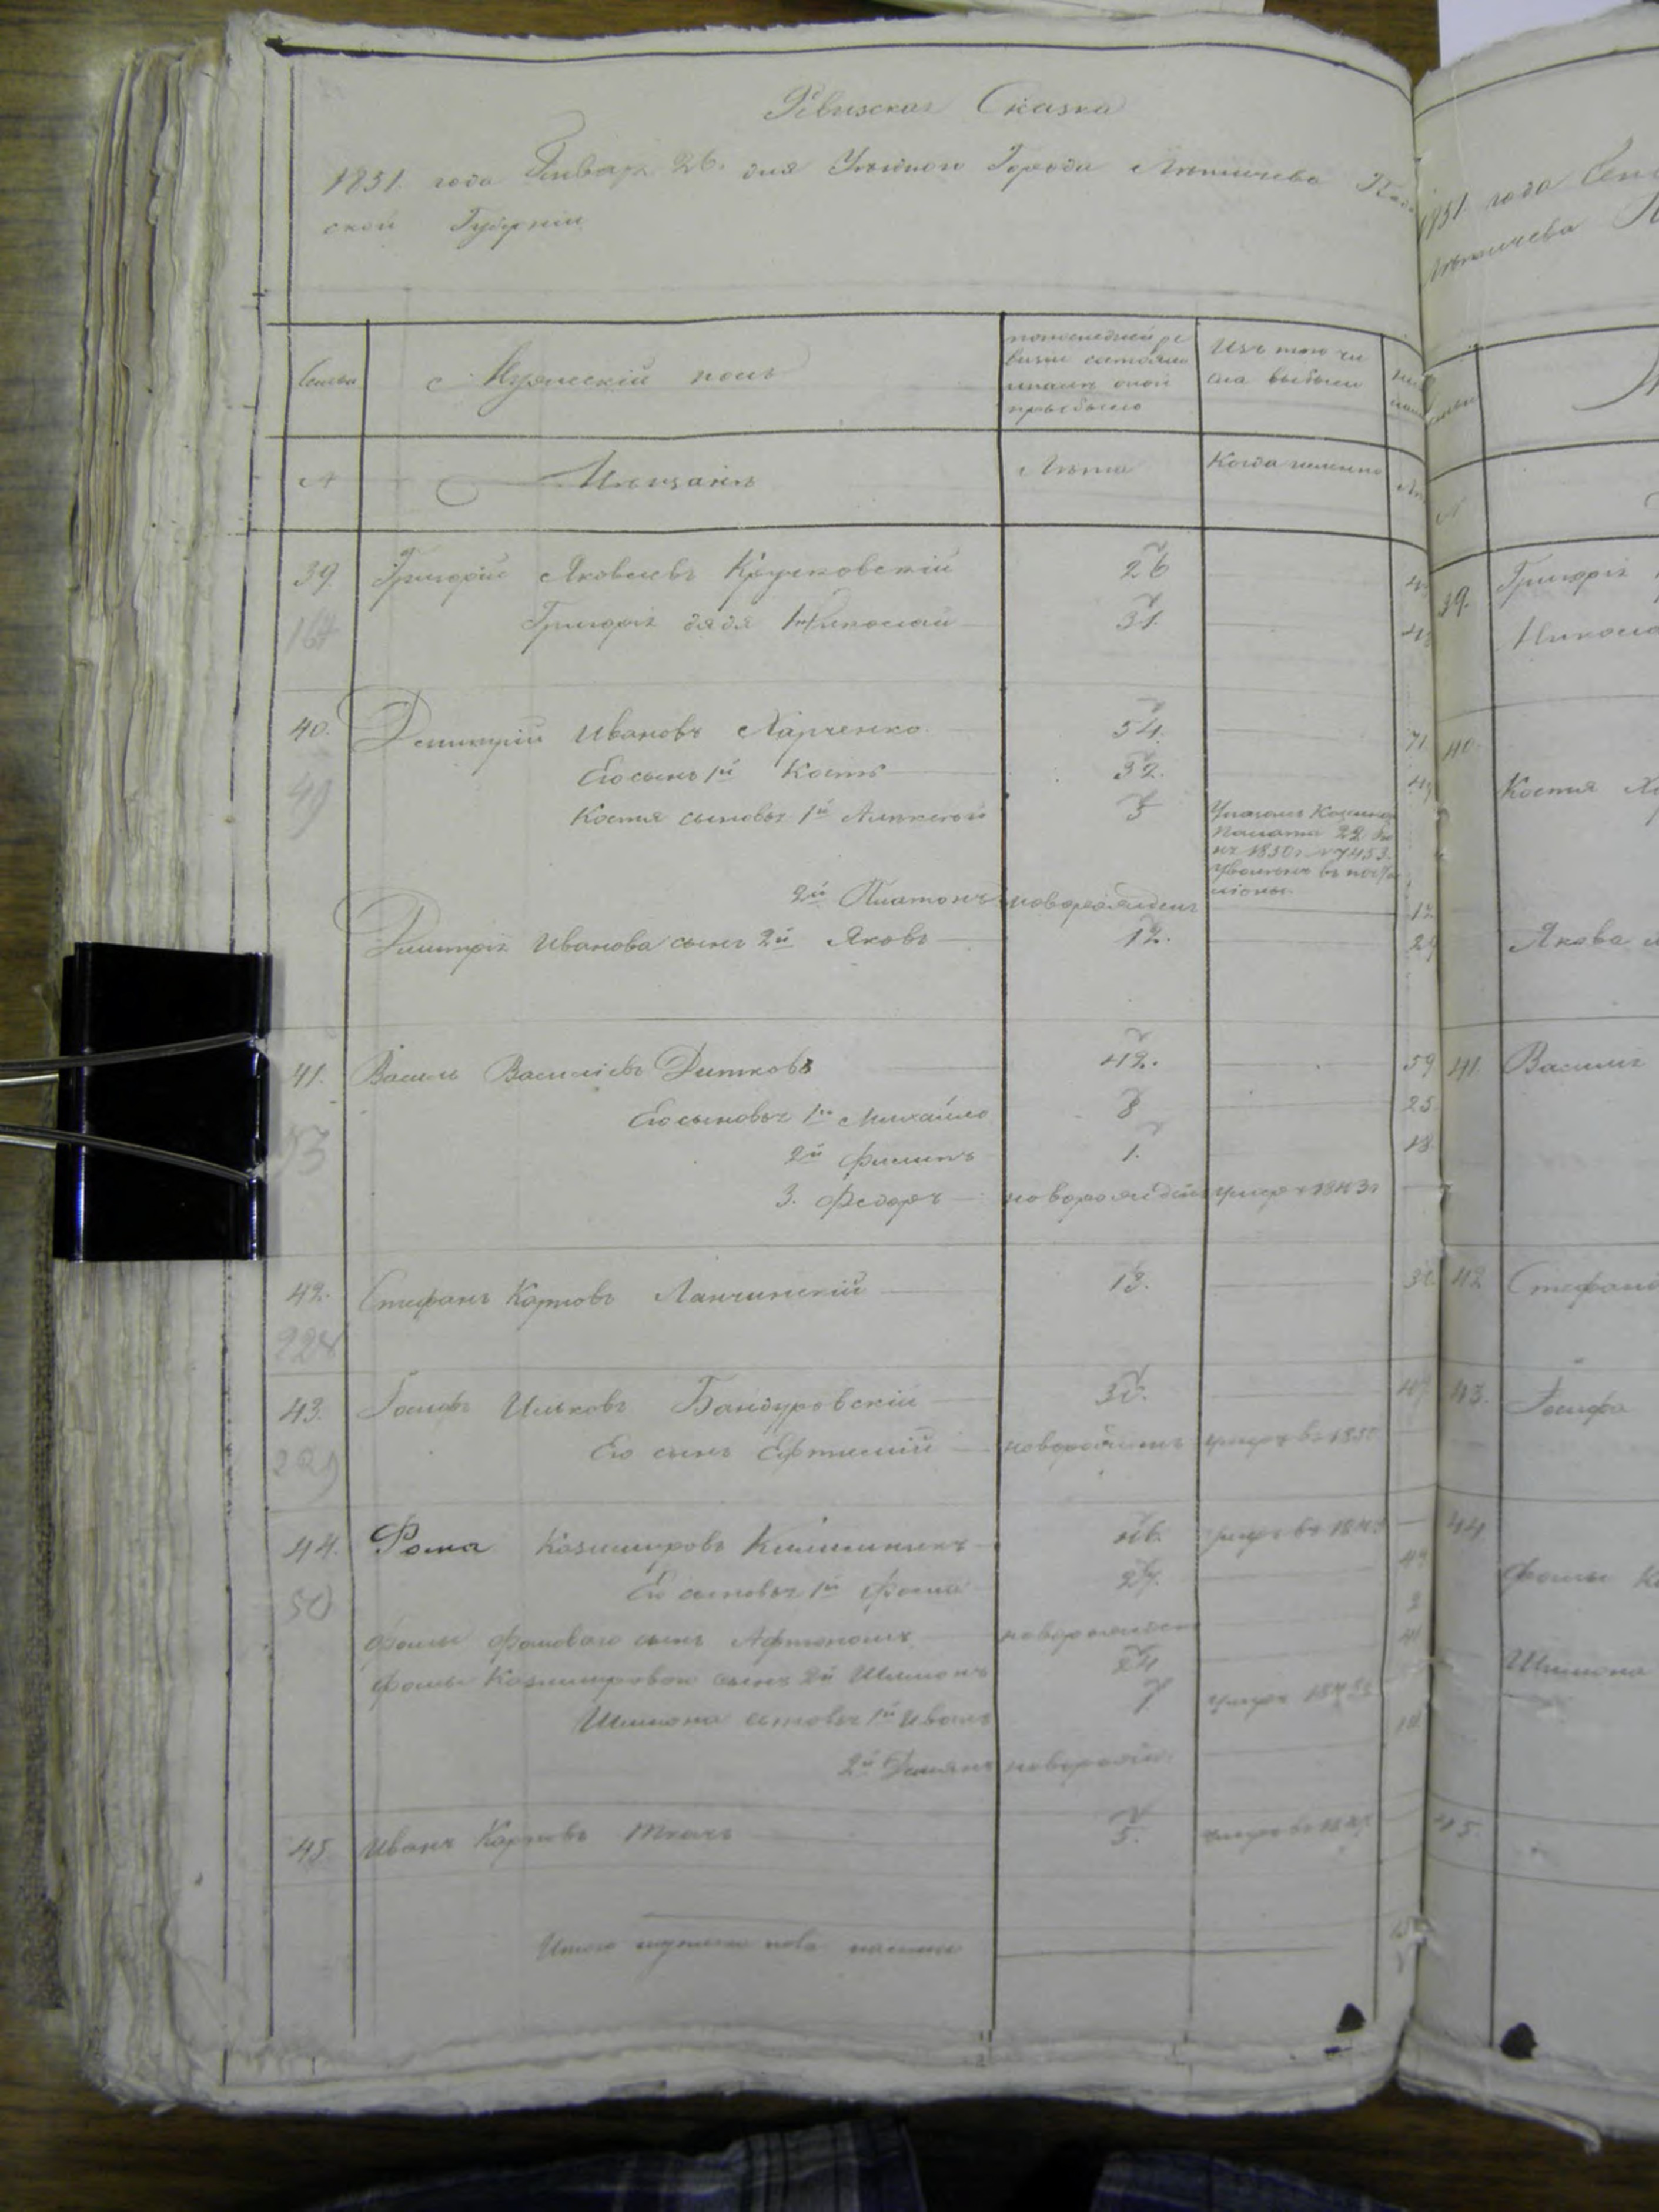 Ревизская Сказка
1851 года Генваря 26. дня Уезднаго Города Летичева Подо
ской Губерніи
Семьи
Мужескій полъ
по последней ре
визіи состояло
и после оной
прибыло
Изъ того чи
сла выбыло
№
Мещанъ
Лета
Когда именно
39. Григорій Яковлевъ Кручковскій 26
167 Григорія дядя Николай 31.
40. Дмитрій Ивановъ Харченко 54. 71
49 Его сынъ 1й Костя 32. 49
Костя сыновья 1й Алексей 3 Указомъ Казенной
Палаты 22
1850 г №7453.
2й Платонъ новорожденъ 17
Дмитрія Иванова сынъ 2й Яковъ 12. 29
41. Василь Васильевъ Дитковъ 42. 59
53 Его сыновья 1й Михайло 8 25
2й Филипъ 1. 18
3. Федоръ новорожден умеръ 1843г
42. Стефанъ Карповъ Лапчинскій 13. 30
224
43. Іосифъ Ильковъ Бандуровскій 30. 47
229 Его сынъ Ефтимій новорожденъ умеръ въ 1850
44. Фома Казимировъ 46. умеръ въ 184
50 Его сыновья 1й Фома 27. 44
Фомы Фомоваго сынъ Афтономъ новорожден
Фомы Казимировои сынъ 2й Шимонъ 24 41
Шимона сыновья 1й Иванъ 7 умеръ
2й Демянъ новорожден
45 Иванъ Карповъ Ткачъ 5. умеръ въ 184
Итого мужеска пола налицо
1851 года
Летичева
39. Григорія
Никола
40.
Костя
Якова
41 Василія
42 Стефана
43. Іосифа
44
Фомы
Шимона
45.